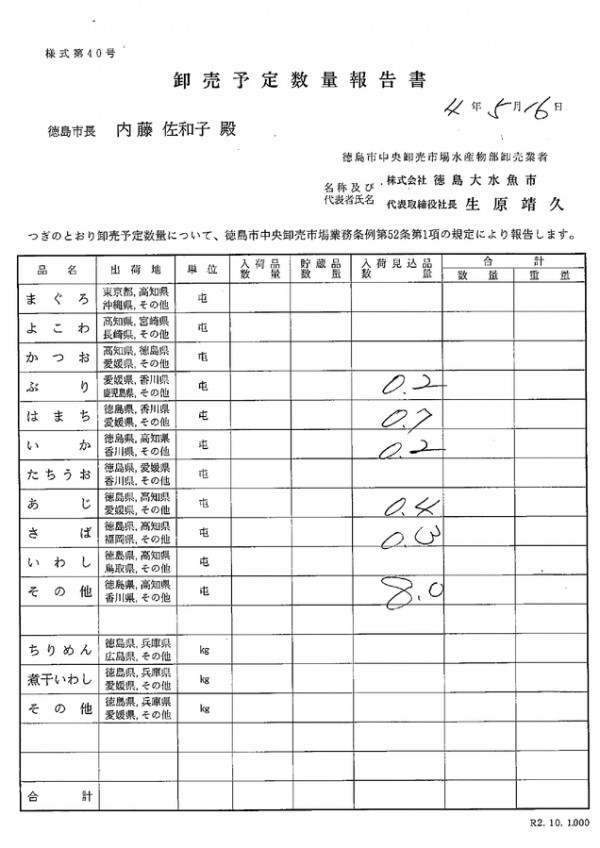 様式第40号
卸売予定数量報告書
4年5月16日
徳島市長 内藤 佐和子 殿
徳島市中央卸売市場水産物部卸売業者
名称及び 株式会社 徳島大水魚市
代表者氏名 代表取締役社長 生原靖久
つぎのとおり卸売予定数量について、徳島市中央卸売市場業務条例第52条第1項の規定により報告します。
品名 出荷地 単位 入荷品数量 貯蔵品数量 入荷見込品数量 合計
数量 重量
まぐろ 東京都, 高知県 沖縄県, その他 屯
よこわ 高知県, 宮崎県 長崎県, その他 屯
かつお 高知県, 徳島県 愛媛県, その他 屯
ぶり 愛媛県, 香川県 鹿児島県, その他 屯 0.2
はまち 徳島県, 香川県 愛媛県, その他 屯 0.7
いか 徳島県, 高知県 香川県, その他 屯 0.2
たちうお 徳島県, 愛媛県 香川県, その他 屯
あじ 徳島県, 高知県 愛媛県, その他 屯 0.4
さば 徳島県, 高知県 福岡県, その他 屯 0.3
いわし 徳島県, 高知県 鳥取県, その他 屯
その他 徳島県, 高知県 香川県, その他 屯 8.0
ちりめん 徳島県, 兵庫県 広島県, その他 kg
煮干いわし 徳島県, 兵庫県 愛媛県, その他 kg
その他 徳島県, 兵庫県 愛媛県, その他 kg
合計
R2. 10. 1.000